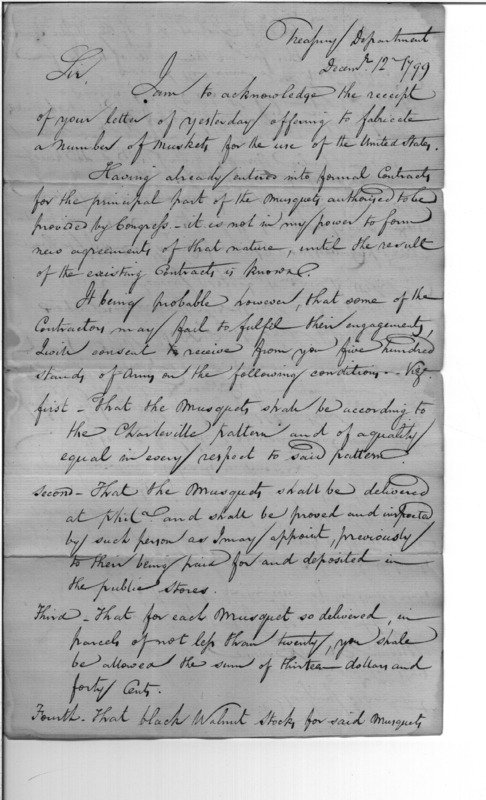 Treasury Department
Decemr. 12th 1799
Sir
I am to acknowledge the receipt
of your letter of yesterday offering to fabricate
a number of Muskets for the use of the United States.
Having already entered into formal Contracts
for the principal part of the Musquets authorised to be
provided by Congress - it is not in my power to form
new agreements of that nature, until the result
of the existing Contracts is known.
It being probable however, that some of the
Contractors may fail to fulfil their engagements,
I will consent to receive from you five hundred
stands of Arms on the following conditions - Vizt.
first - That the Musquets shall be according to
the Charleville pattern and of a quality
equal in every respect to said pattern.
Second - That the Musquets shall be delivered
at Phila. and shall be proved and inspected
by such person as I may appoint, previously
to their being paid for and deposited in
the public stores.
Third - That for each Musquet so delivered, in
parcels of not less than twenty, you shall
be allowed the sum of thirteen dollars and
forty Cents.
Fourth - That black Walnut stocks for said Musquets